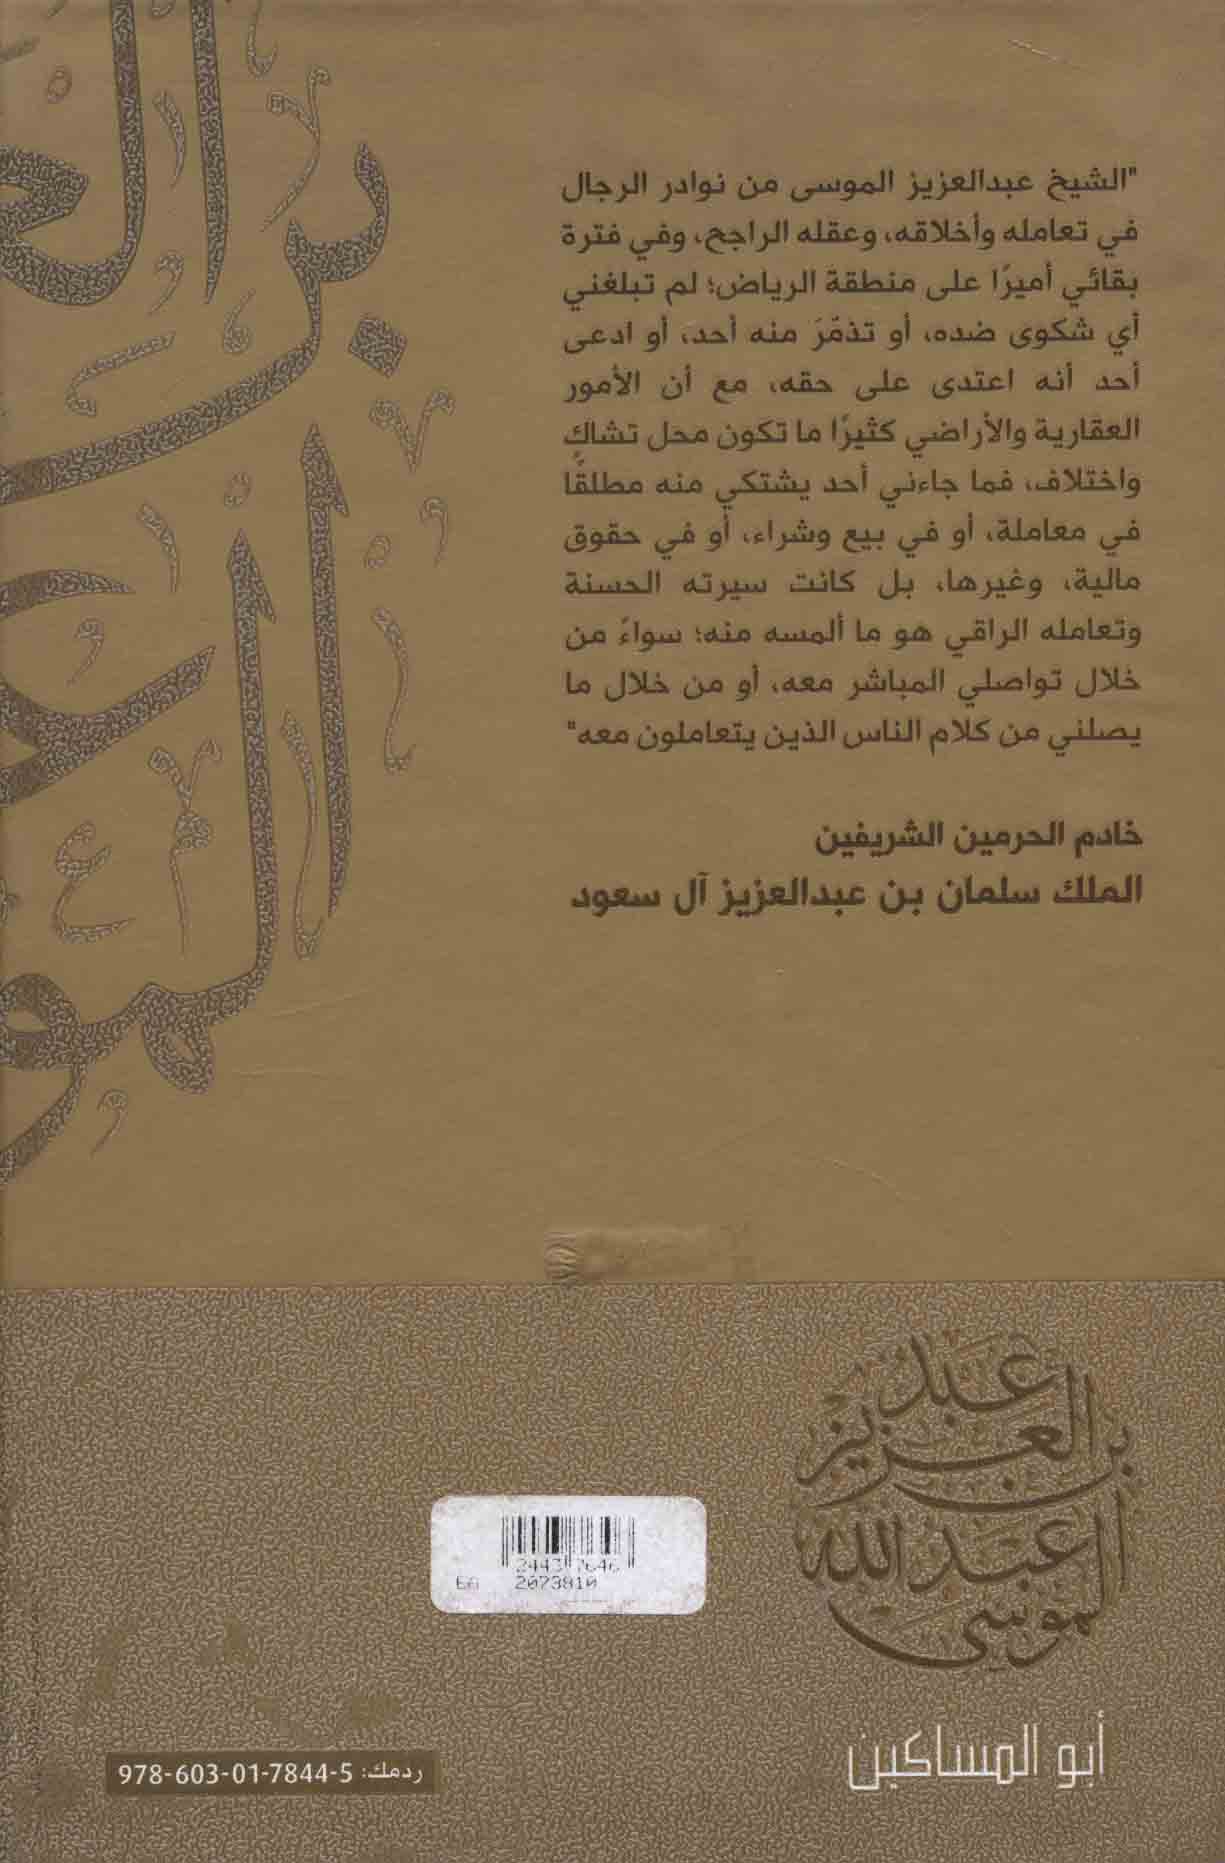 "الشيخ عبدالعزيز الموسى من نوادر الرجال
في تعامله وأخلاقه، وعقله الراجح، وفي فترة
بقائي أميرًا على منطقة الرياض؛ لم تبلغني
أي شكوى ضده، أو تذمّرَ منه أحد، أو ادعى
أحد أنه اعتدى على حقه، مع أن الأمور
العقارية والأراضي كثيرًا ما تكون محل تشاكٍ
واختلاف، فما جاءني أحد يشتكي منه مطلقًا
في معاملة، أو في بيع وشراء، أو في حقوق
مالية، وغيرها، بل كانت سيرته الحسنة
وتعامله الراقي هو ما ألمسه منه؛ سواءً من
خلال تواصلي المباشر معه، أو من خلال ما
يصلني من كلام الناس الذين يتعاملون معه"
خادم الحرمين الشريفين
الملك سلمان بن عبدالعزيز آل سعود
عبد
العزيز بن
عبد الله
الموسى
أبو المساكين
2443 7646
2073810
ردمك: 5-7844-01-603-978